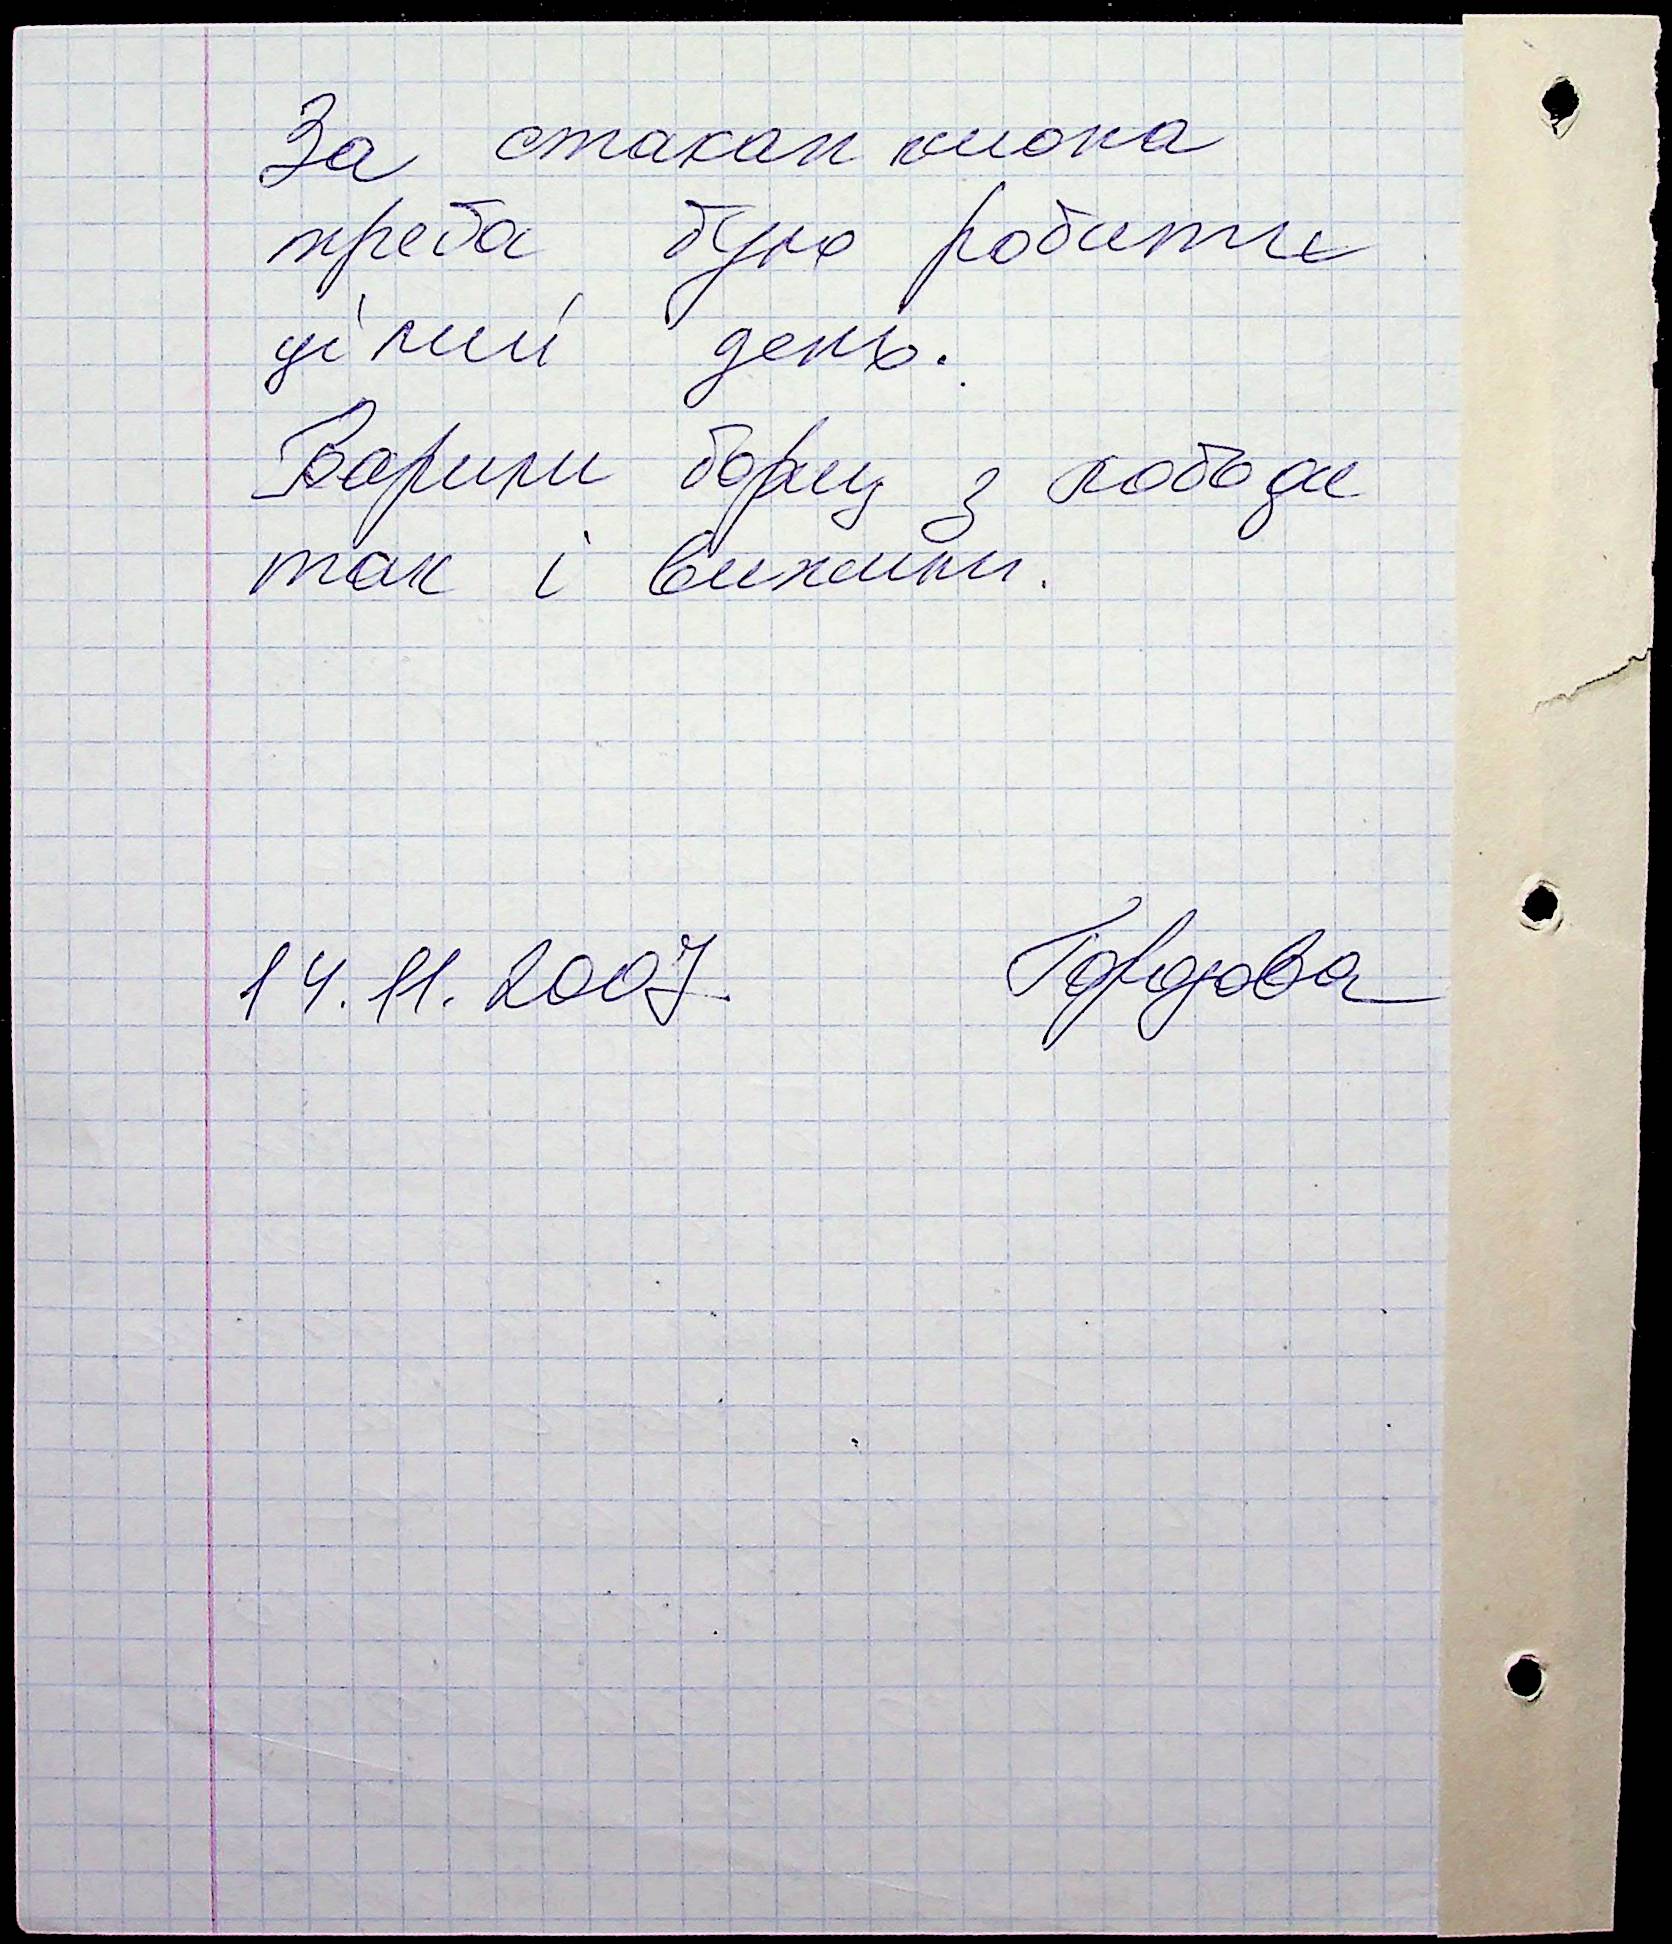 За стакан пшона
треба було робити
цілий день.
Варили борщ з лободи
так і вижили.
14.11.2007